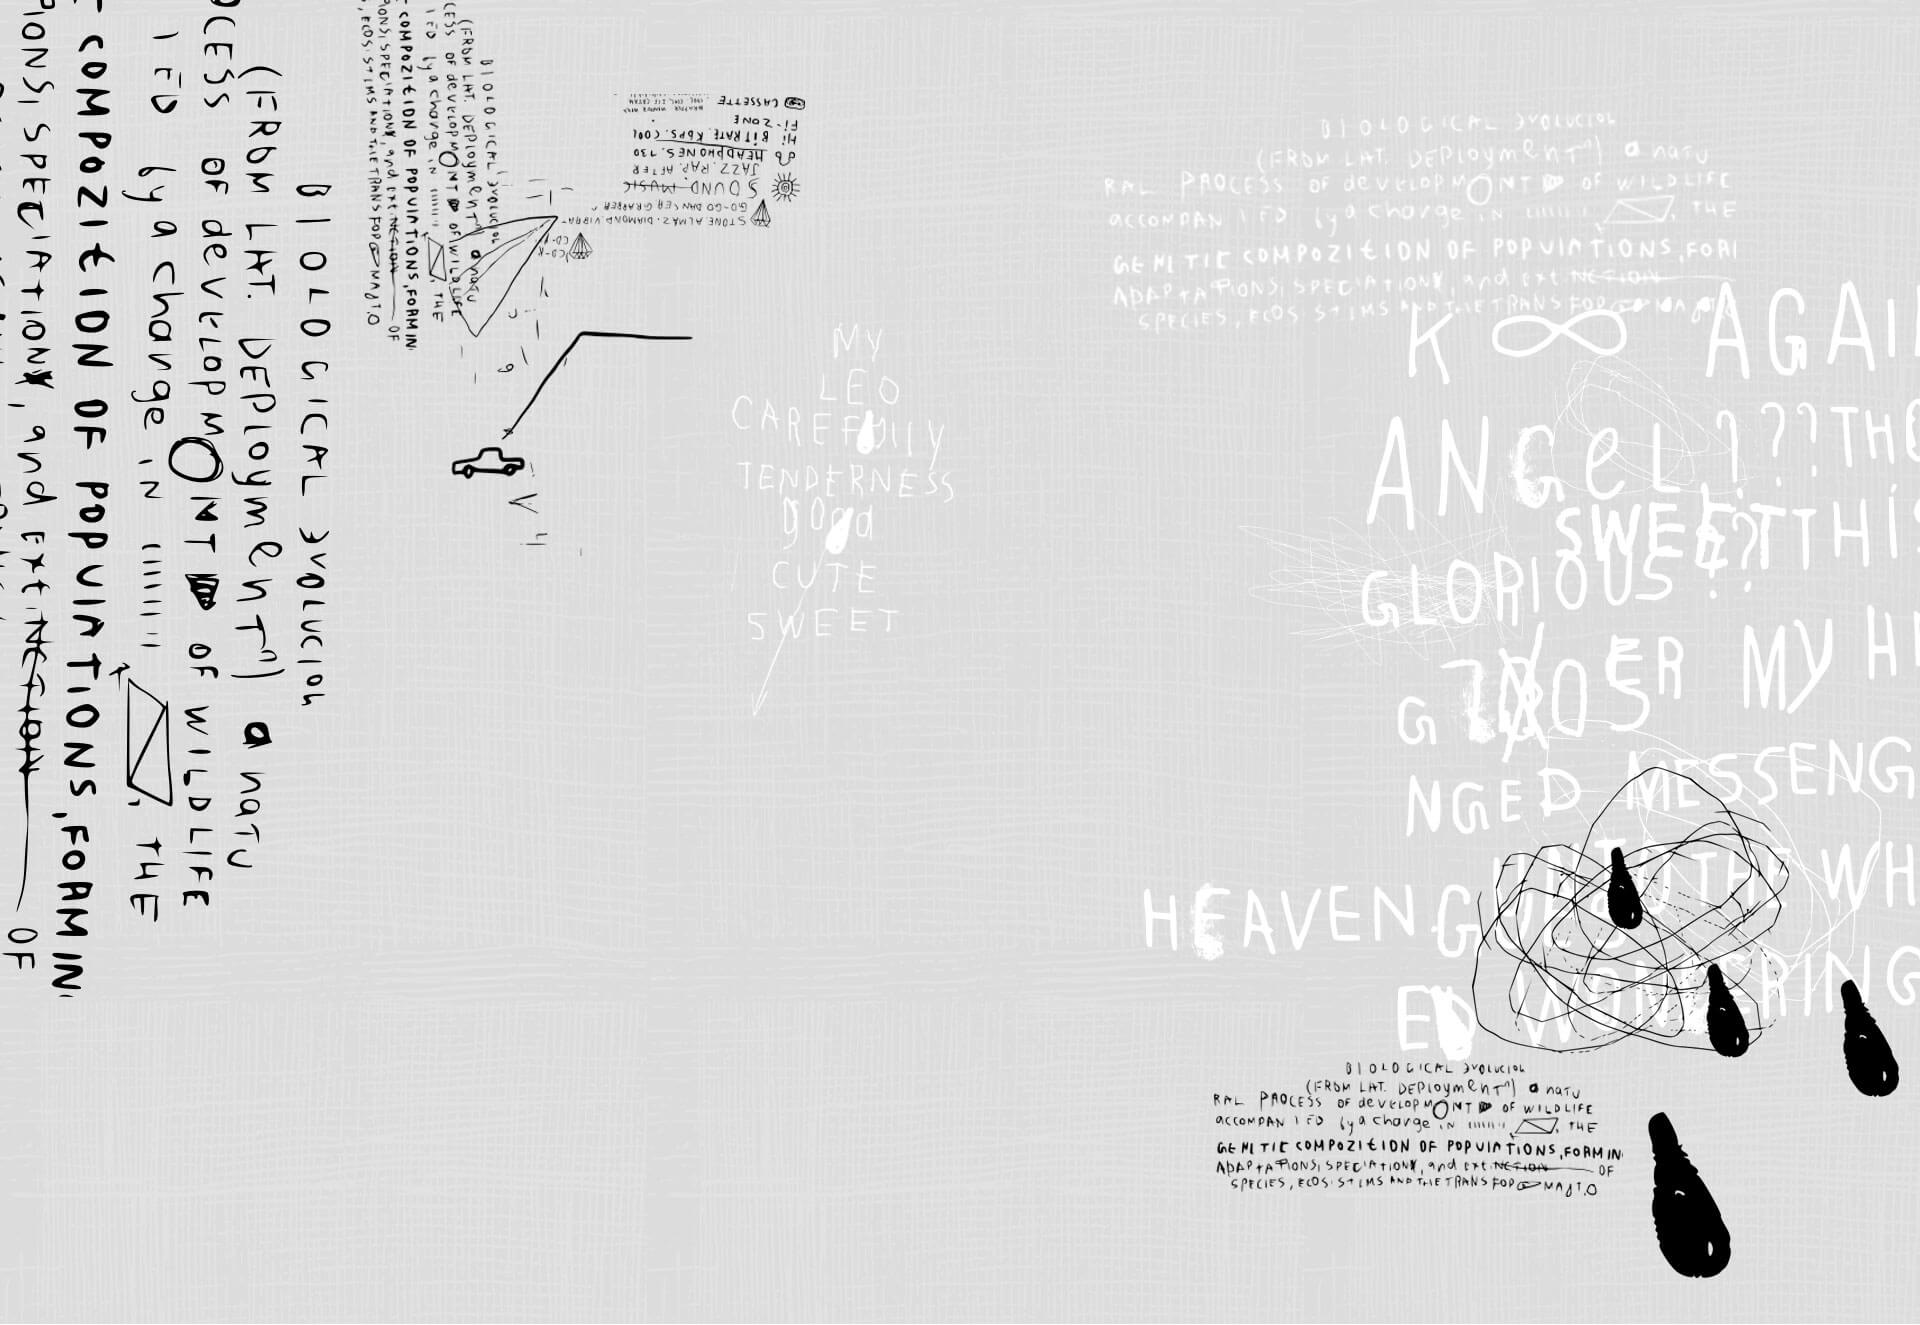 BIOLOGICAL EVOLUCION
(FROM LAT. DEPloyment") a natu
OCESS OF developMONT OF WILDLIFE
IED by a change IN THE
COMPOZITION OF POPULATIONS, FORMIN
PIONS, SPECIATION, and Ext NCTION OF
BIOLOGICAL EVOLUCION
(FROM LAT. DEPloyment") a natu
CESS OF developMONT OF WILDLIFE
IED by a change IN THE
COMPOZITION OF POPULATIONS, FORMIN
PIONS, SPECIATION, and Ext NCTION OF
, ECOSISTIMS AND THE TRANSFOR MAJT.O
CD-K
STONE ALMAZ. DIAMOND. VIBRA-
GO-GO DANSER GRABBER
SOUND MUSIC
JAZZ. RAP. AFTER
HEADPHONES. 730
Hi BITRATE. KBPS. COOL
Fi-ZONE
CASSETTE
MY
LEO
CAREFUlly
TENDERNESS
good
CUTE
SWEET
BIOLOGICAL EVOLUCION
(FROM LAT. DEPloyment") a natu
RAL PROCESS OF developMONT OF WILDLIFE
accompan IED by a change IN THE
GENITIC COMPOZITION OF POPULATIONS, FORM
ADAPTATIONS, SPECIATION, and Ext NCTION
SPECIES, ECOSISTIMS AND THE TRANSFOR MAJT.
K AGAI
ANGEL ??? THE
SWEET THIS
GLORIOUS
ER MY HE
NGED MESSENG
UNTO THE WH
HEAVEN
ED WONDERING
BIOLOGICAL EVOLUCION
(FROM LAT. DEPloyment") a natu
RAL PROCESS OF developMONT OF WILDLIFE
accompan IED by a change IN THE
GENITIC COMPOZITION OF POPULATIONS, FORMIN
ADAPTATIONS, SPECIATION, and Ext NCTION OF
SPECIES, ECOSISTIMS AND THE TRANSFOR MAJT.O